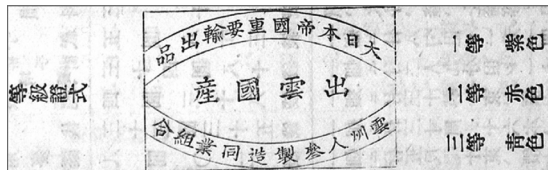 一等　紫色
二等　赤色
三等　青色
大日本帝國重要輸出品
出雲國產
雲州人參製造同業組合
等級證式